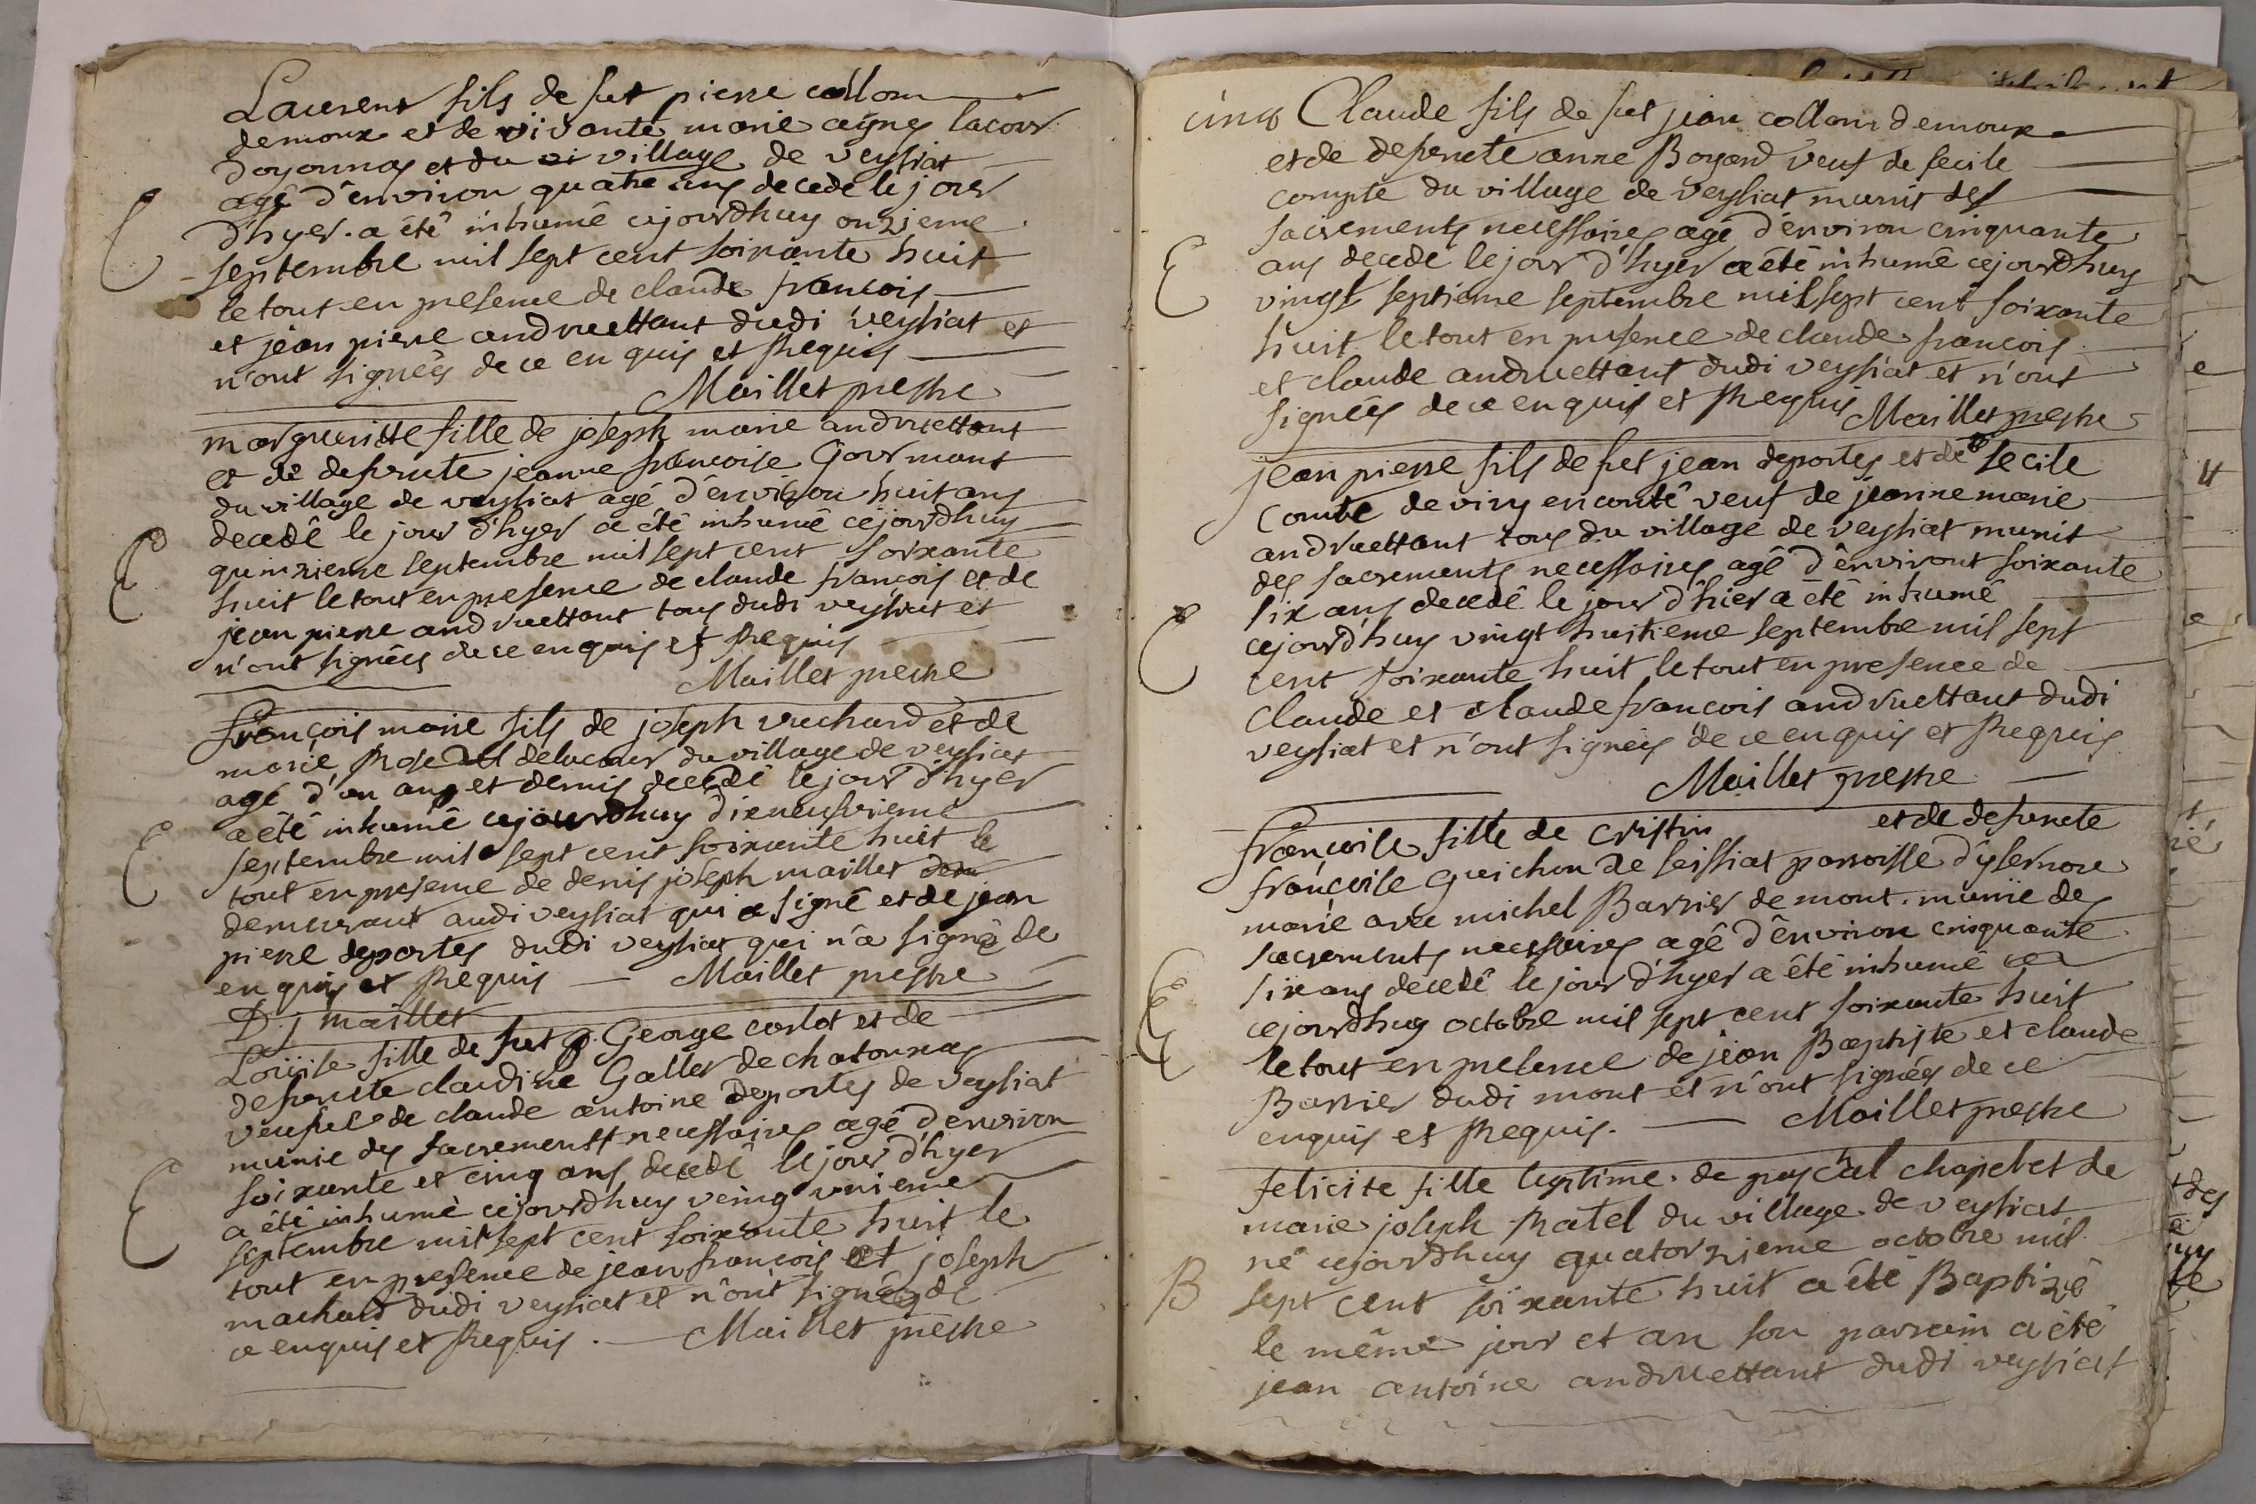 Laurent fils de fut pierre collom
demoux et de vivante marie agnes lacour
doyonnas et du village de veysiat
agé d'environ quatre ans decedé le jour
d'hyer. a été inhumé cejourdhuy onzieme
septembre mil sept cent soixante huit
le tout en presence de claude françois
et jean pierre andruettant dudi veysiat et
n'ont signées de ce en quis et Requis
Maillet prestre
margueritte fille de joseph marie andruettant
et de defunte jeanne françoise Gourmant
du village de veysiat agé d'environ huit ans
decedé le jour d'hyer a été inhumé cejourdhuy
quinzieme septembre mil sept cent soixante
huit le tout en presence de claude françois et de
jean pierre andruettant tous dudi veysiat et
n'ont signées de ce en quis et Requis
Maillet prestre
françois marie fils de joseph vuchard et de
marie Rose delacour du village de veysiat
agé d'un ans et demis decedé le jour d'hyer
a été inhumé cejourdhuy dixneufvieme
septembre mil sept cent soixante huit le
tout en presence de denis joseph maillet
demeurant audi veysiat qui a signé et de jean
pierre deportes dudi veysiat qui n'a signé de
en quis et Requis — Maillet prestre
D. j maillet
Loüise fille de fut George carlot et de
defuncte claudine Gallet de chatonnas
veufve de claude antoine deportes de veysiat
munie des sacrements necessaires agé d'environ
soixante et cinq ans decedé le jour d'hyer
a été inhumé cejourdhuy veingt unieme
septembre mil sept cent soixante huit le
tout en presence de jean françois et joseph
machard dudi veysiat et n'ont signées de
ce enquis et Requis. — Maillet prestre
cinq Claude fils de fut jean collom demoux
et de defuncte anne Boyard veuf de secile
compte du village de veysiat munit des
sacrements necessaires agé d'environ cinquante
ans decedé le jour d'hyer a été inhumé cejourdhuy
vingt septieme septembre mil sept cent soixante
huit le tout en presence de claude françois
et claude andruettant dudi veysiat et n'ont
signées de ce en quis et Requis Maillet prestre
jean pierre fils de fut jean deportes et de secile
comte de viry en conté veuf de jeanne marie
andruettant tous du village de veysiat munit
des sacrements necessaires agé d'environt soixante
six ans decedé le jour d'hier a été inhumé
cejourdhuy vingt huitieme septembre mil sept
cent soixante huit le tout en presence de
Claude et claude françois andruettant dudi
veysiat et n'ont signées de ce enquis et Requis
Maillet prestre
françoise fille de cristin et de defuncte
françoise Guichon de seissiat parroisse d'ysernore
marié avec michel Barrier de mont. munie des
sacrements necessaires agé d'environ cinquante
six ans decedé le jour d'hyer a été inhumé
cejourdhuy octobre mil sept cent soixante huit
le tout en presence de jean Baptiste et claude
Barrier dudi mont et n'ont signées de ce
enquis et Requis. — Maillet prestre
felicite fille legitime. de paschal chapel et de
marie joseph Ratel du village de veysiat
né cejourdhuy quatorzieme octobre mil
B sept cent soixante huit a été Baptizé
le même jour et an son parrain a été
jean antoine andruettant dudi veysiat